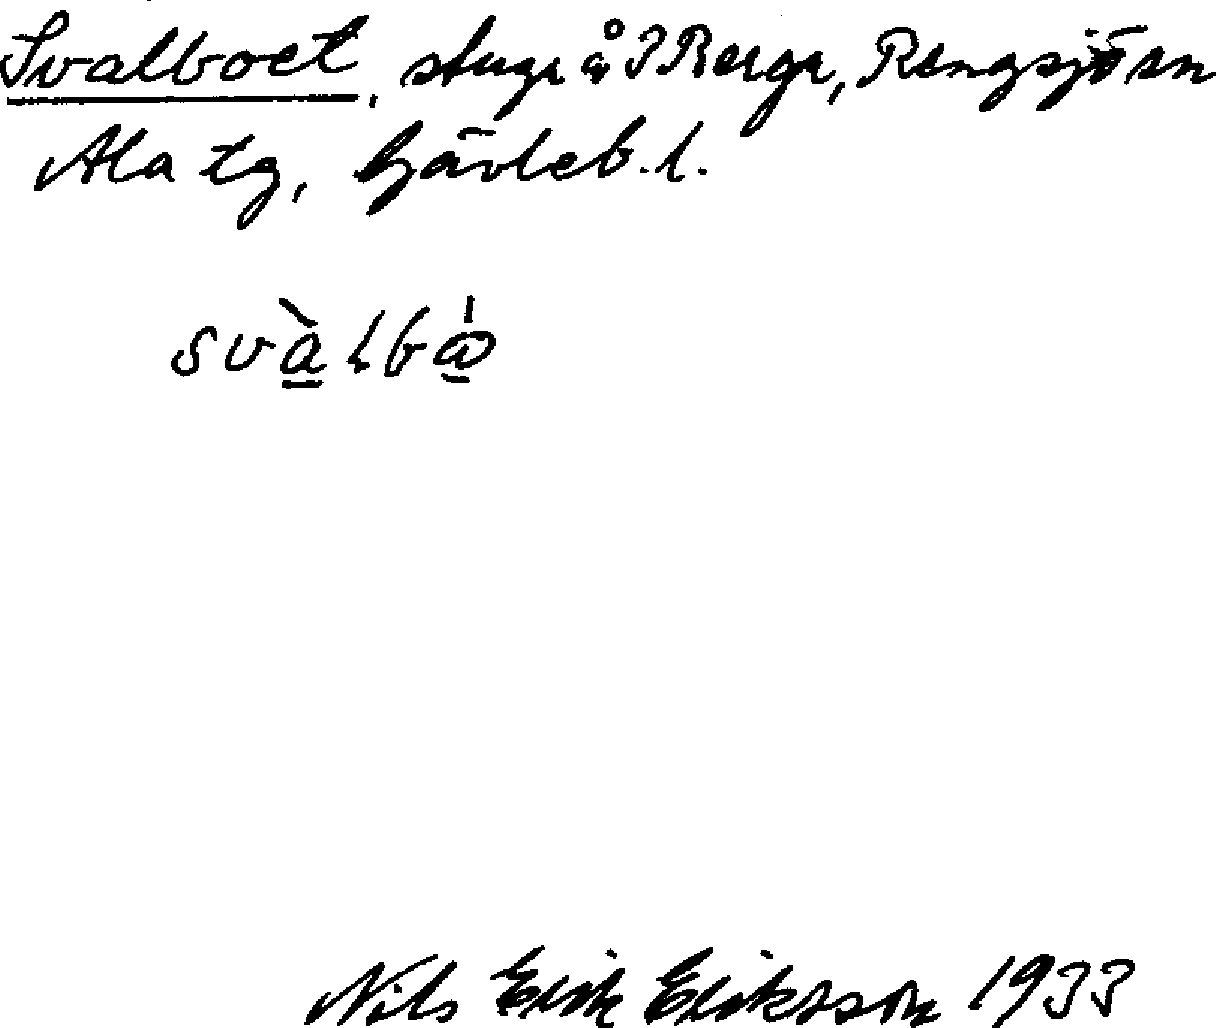 Svalboet, stuga å 3 Berga, Rengsjö sn
Ala tg, Gävleb. l.
Nils Erik Eriksson 1933